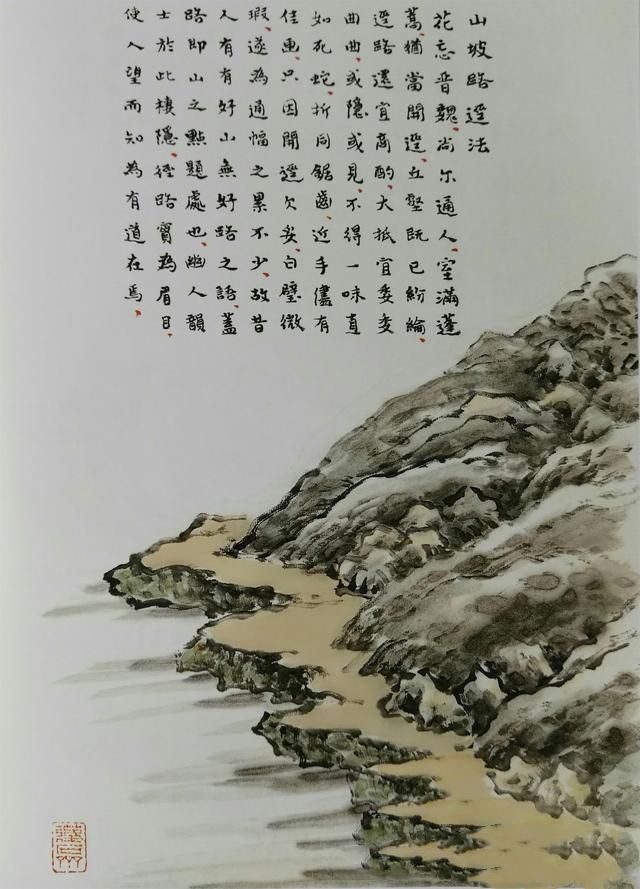 山坡路逕法
花忘晉魏、尚尔通人、室滿蓬
蒿、猶當開逕、丘壑既已紛綸、
逕路還宜商酌、大抵宜委委
曲曲、或隱或見、不得一味直
如死蛇、折同鋸齒、近手儘有
佳画、只因開逕欠妥、白璧微
瑕、遂為通幅之累不少、故昔
人有有好山無好路之語、蓋
路即山之點題處也、幽人韻
士於此棲隱、徑路實為眉目、
使人望而知為有道在焉、